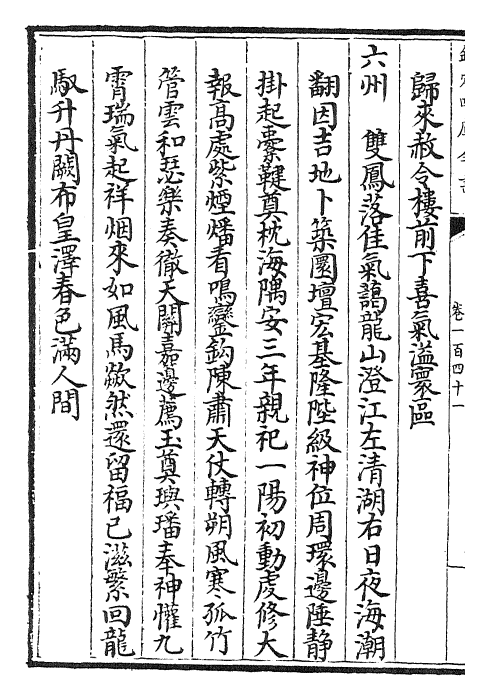 欽定四庫全書
卷一百四十一
歸來赦令樓前下喜氣溢寰區
六州　雙鳳落佳氣藹龍山澄江左清湖右日夜海潮
翻因吉地卜築圜壇宏基隆陛級神位周環邊陲靜
掛起櫜鞬奠枕海隅安三年親祀一陽初動虔修大
報髙處紫煙燔看鳴鑾鈎陳肅天仗轉朔風寒孤竹
管雲和瑟樂奏徹天關嘉邊薦玉奠璵璠奉神懽九
霄瑞氣起祥烟來如風馬歘然還留福已滋繁回龍
馭升丹闕布皇澤春色滿人間